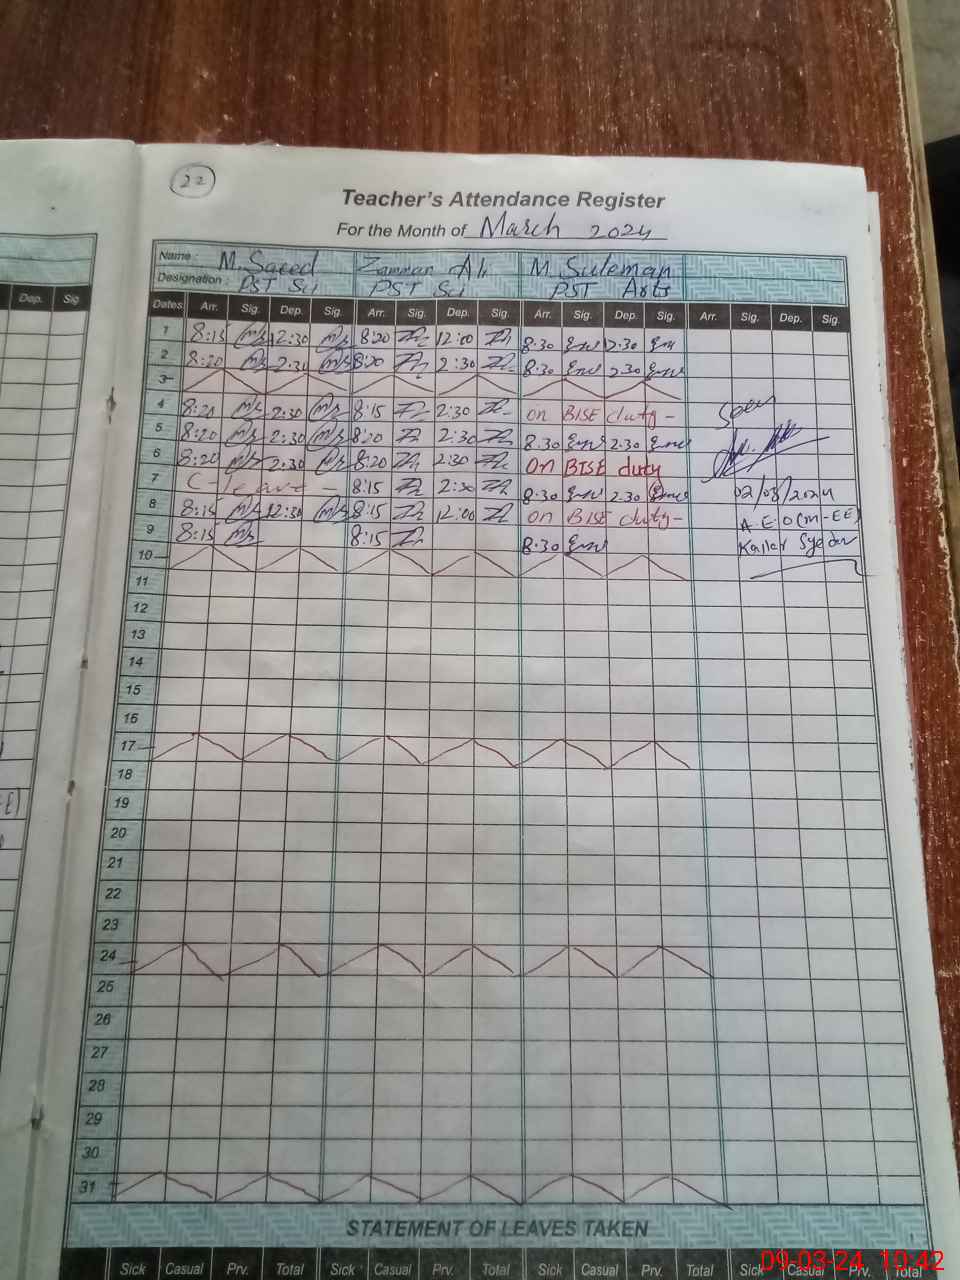 22
Teacher's Attendance Register
For the Month of March 2024
Name : M. Saeed Zamman Ali M. Suleman
Designation : PST Sci PST Sci PST Arts
Dep. Sig
Dates Arr. Sig. Dep. Sig. Arr. Sig. Dep. Sig. Arr. Sig. Dep. Sig. Arr. Sig. Dep. Sig.
1 8:15 12:30 8:20 12:00 8.30 12.30
2 8:20 2:30 8:20 2:30 8.30 2.30
3
4 8:20 2:30 8:15 2:30 on BISE duty - Seen
5 8:20 2:30 8:20 2:30 8.30 2.30
6 8:20 2:30 8:20 2:30 on BISE duty
7 C-leave - 8:15 2:30 8.30 2.30 02/03/2024
8 8:15 12:30 8:15 12:00 on BISE duty - A.E.O(M-EE)
9 8:15 8:15 8.30 Kallar Syedan
10
11
12
13
14
15
16
17
18
19
20
21
22
23
24
25
26
27
28
29
30
31
STATEMENT OF LEAVES TAKEN
Sick Casual Prv. Total Sick Casual Prv. Total Sick Casual Prv. Total Sick Casual Prv. Total
09-03-24 10:42